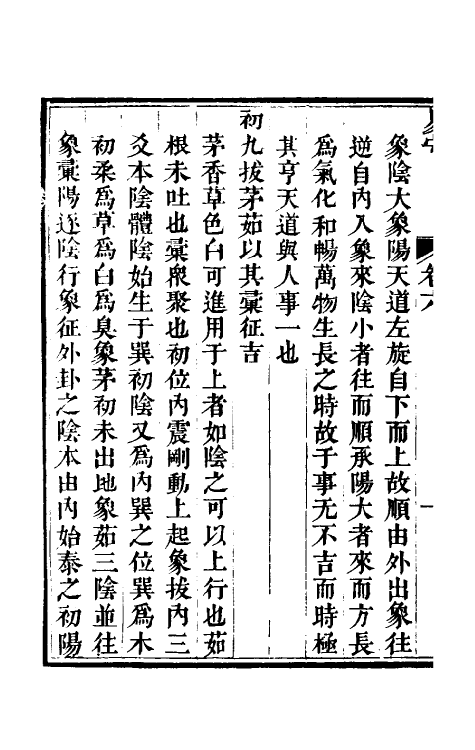 卷六
象陰大象陽天道左旋自下而上故順由外出象往
逆自內入象來陰小者往而順承陽大者來而方長
爲氣化和暢萬物生長之時故于事无不吉而時極
其亨天道與人事一也
初九拔茅茹以其彙征吉
茅香草色白可進用于上者如陰之可以上行也茹
根未吐也彙衆聚也初位內震剛動上起象拔內三
爻本陰體陰始生于巽初陰又爲內巽之位巽爲木
初柔爲草爲白爲臭象茅初未出地象茹三陰並往
象彙陽逐陰行象征外卦之陰本由內始泰之初陽